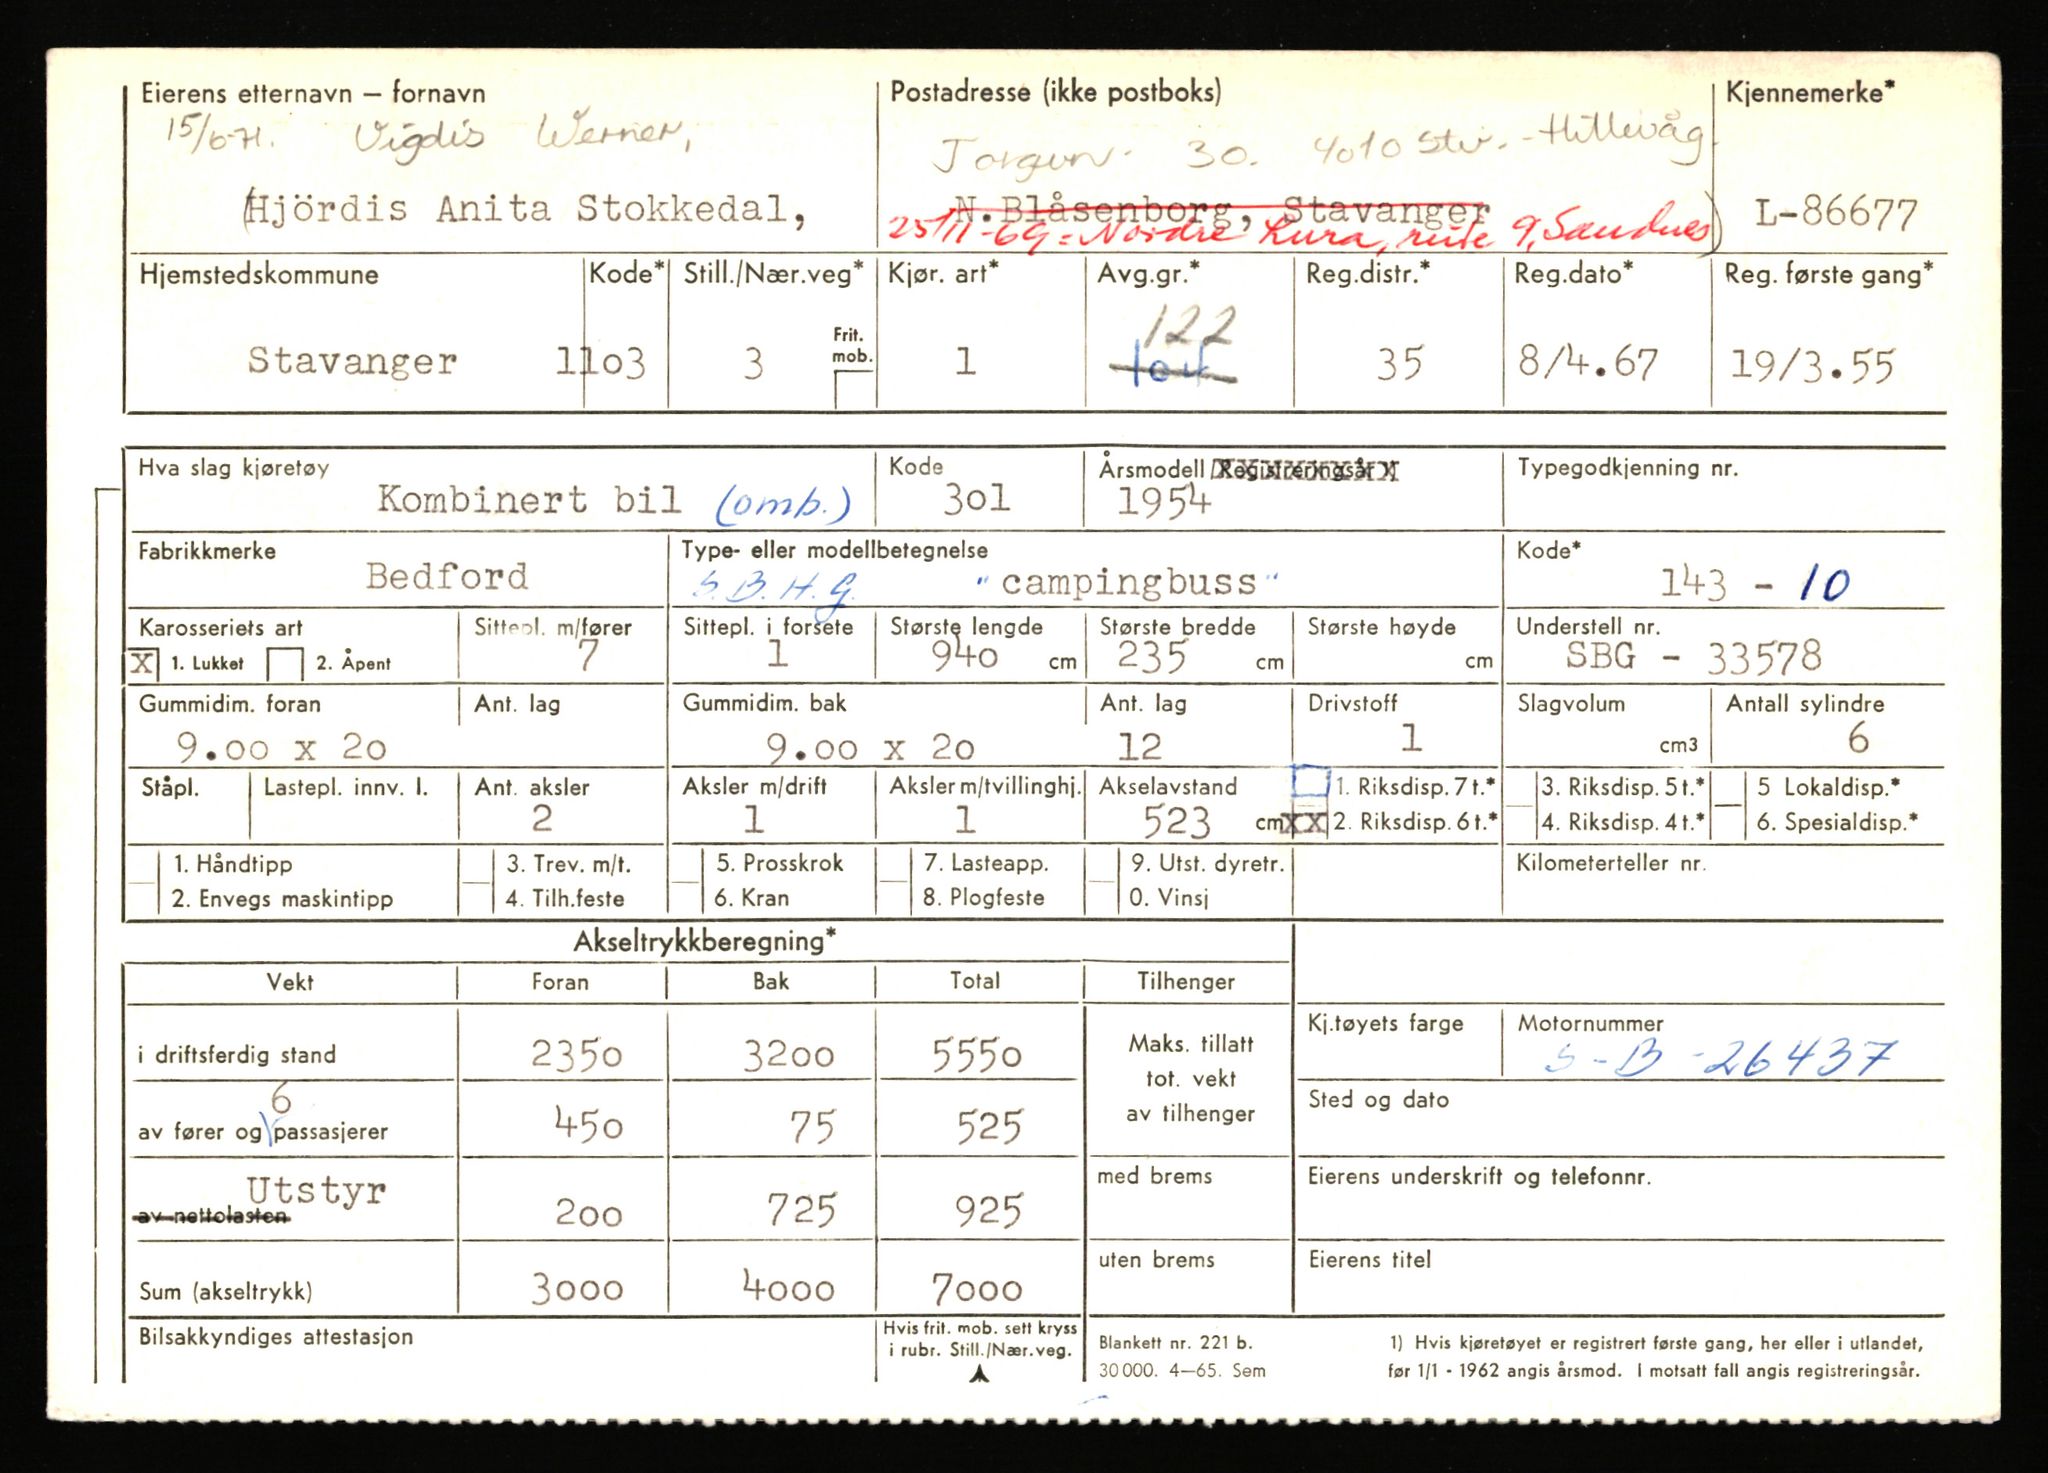 Eierens etternavn – fornavn
Postadresse (ikke postboks)
Kjennemerke*
15/6-71. Vigdis Werner,
30. 4010 Stv. - Hillevåg.
(Hjördis Anita Stokkedal,
N. Blåsenborg, Stavanger
L-86677
25/11-69 = Nordre Lura, rute 9, Sandnes)
Hjemstedskommune
Kode*
Still./Nær.veg*
Kjør. art*
Avg.gr.*
Reg.distr.*
Reg.dato*
Reg. første gang*
Stavanger
11o3
3
Frit. mob.
1
122
104
35
8/4.67
19/3.55
Hva slag kjøretøy
Kode
Årsmodell Registreringsår
Typegodkjenning nr.
Kombinert bil (omb.)
3o1
1954
Fabrikkmerke
Type- eller modellbetegnelse
Kode*
Bedford
S.B.H.G. "campingbuss"
143 - 10
Karosseriets art
Sittepl. m/fører
Sittepl. i forsete
Største lengde
Største bredde
Største høyde
Understell nr.
X 1. Lukket 2. Åpent
7
1
94o cm
235 cm
cm
SBG - 33578
Gummidim. foran
Ant. lag
Gummidim. bak
Ant. lag
Drivstoff
Slagvolum
Antall sylindre
9.oo x 2o
9.oo x 2o
12
1
cm3
6
Ståpl.
Lastepl. innv. l.
Ant. aksler
Aksler m/drift
Aksler m/tvillinghj.
Akselavstand
1. Riksdisp. 7 t.*
3. Riksdisp. 5 t.*
5 Lokaldisp.*
2
1
1
523 cm
XX 2. Riksdisp. 6 t.*
4. Riksdisp. 4 t.*
6. Spesialdisp.*
1. Håndtipp
3. Trev. m/t.
5. Prosskrok
7. Lasteapp.
9. Utst. dyretr.
Kilometerteller nr.
2. Envegs maskintipp
4. Tilh.feste
6. Kran
8. Plogfeste
0. Vinsj
Akseltrykkberegning*
Vekt
Foran
Bak
Total
Tilhenger
i driftsferdig stand
235o
32oo
555o
Maks. tillatt
tot. vekt
av tilhenger
Kj.tøyets farge
Motornummer
S-B-26437
6
av fører og passasjerer
45o
75
525
Sted og dato
Utstyr
av nettolasten
2oo
725
925
med brems
Eierens underskrift og telefonnr.
Sum (akseltrykk)
3ooo
4ooo
7ooo
uten brems
Eierens titel
Bilsakkyndiges attestasjon
Hvis frit. mob. sett kryss
i rubr. Still./Nær.veg.
Blankett nr. 221 b.
30 000. 4—65. Sem
1) Hvis kjøretøyet er registrert første gang, her eller i utlandet,
før 1/1 - 1962 angis årsmod. I motsatt fall angis registreringsår.